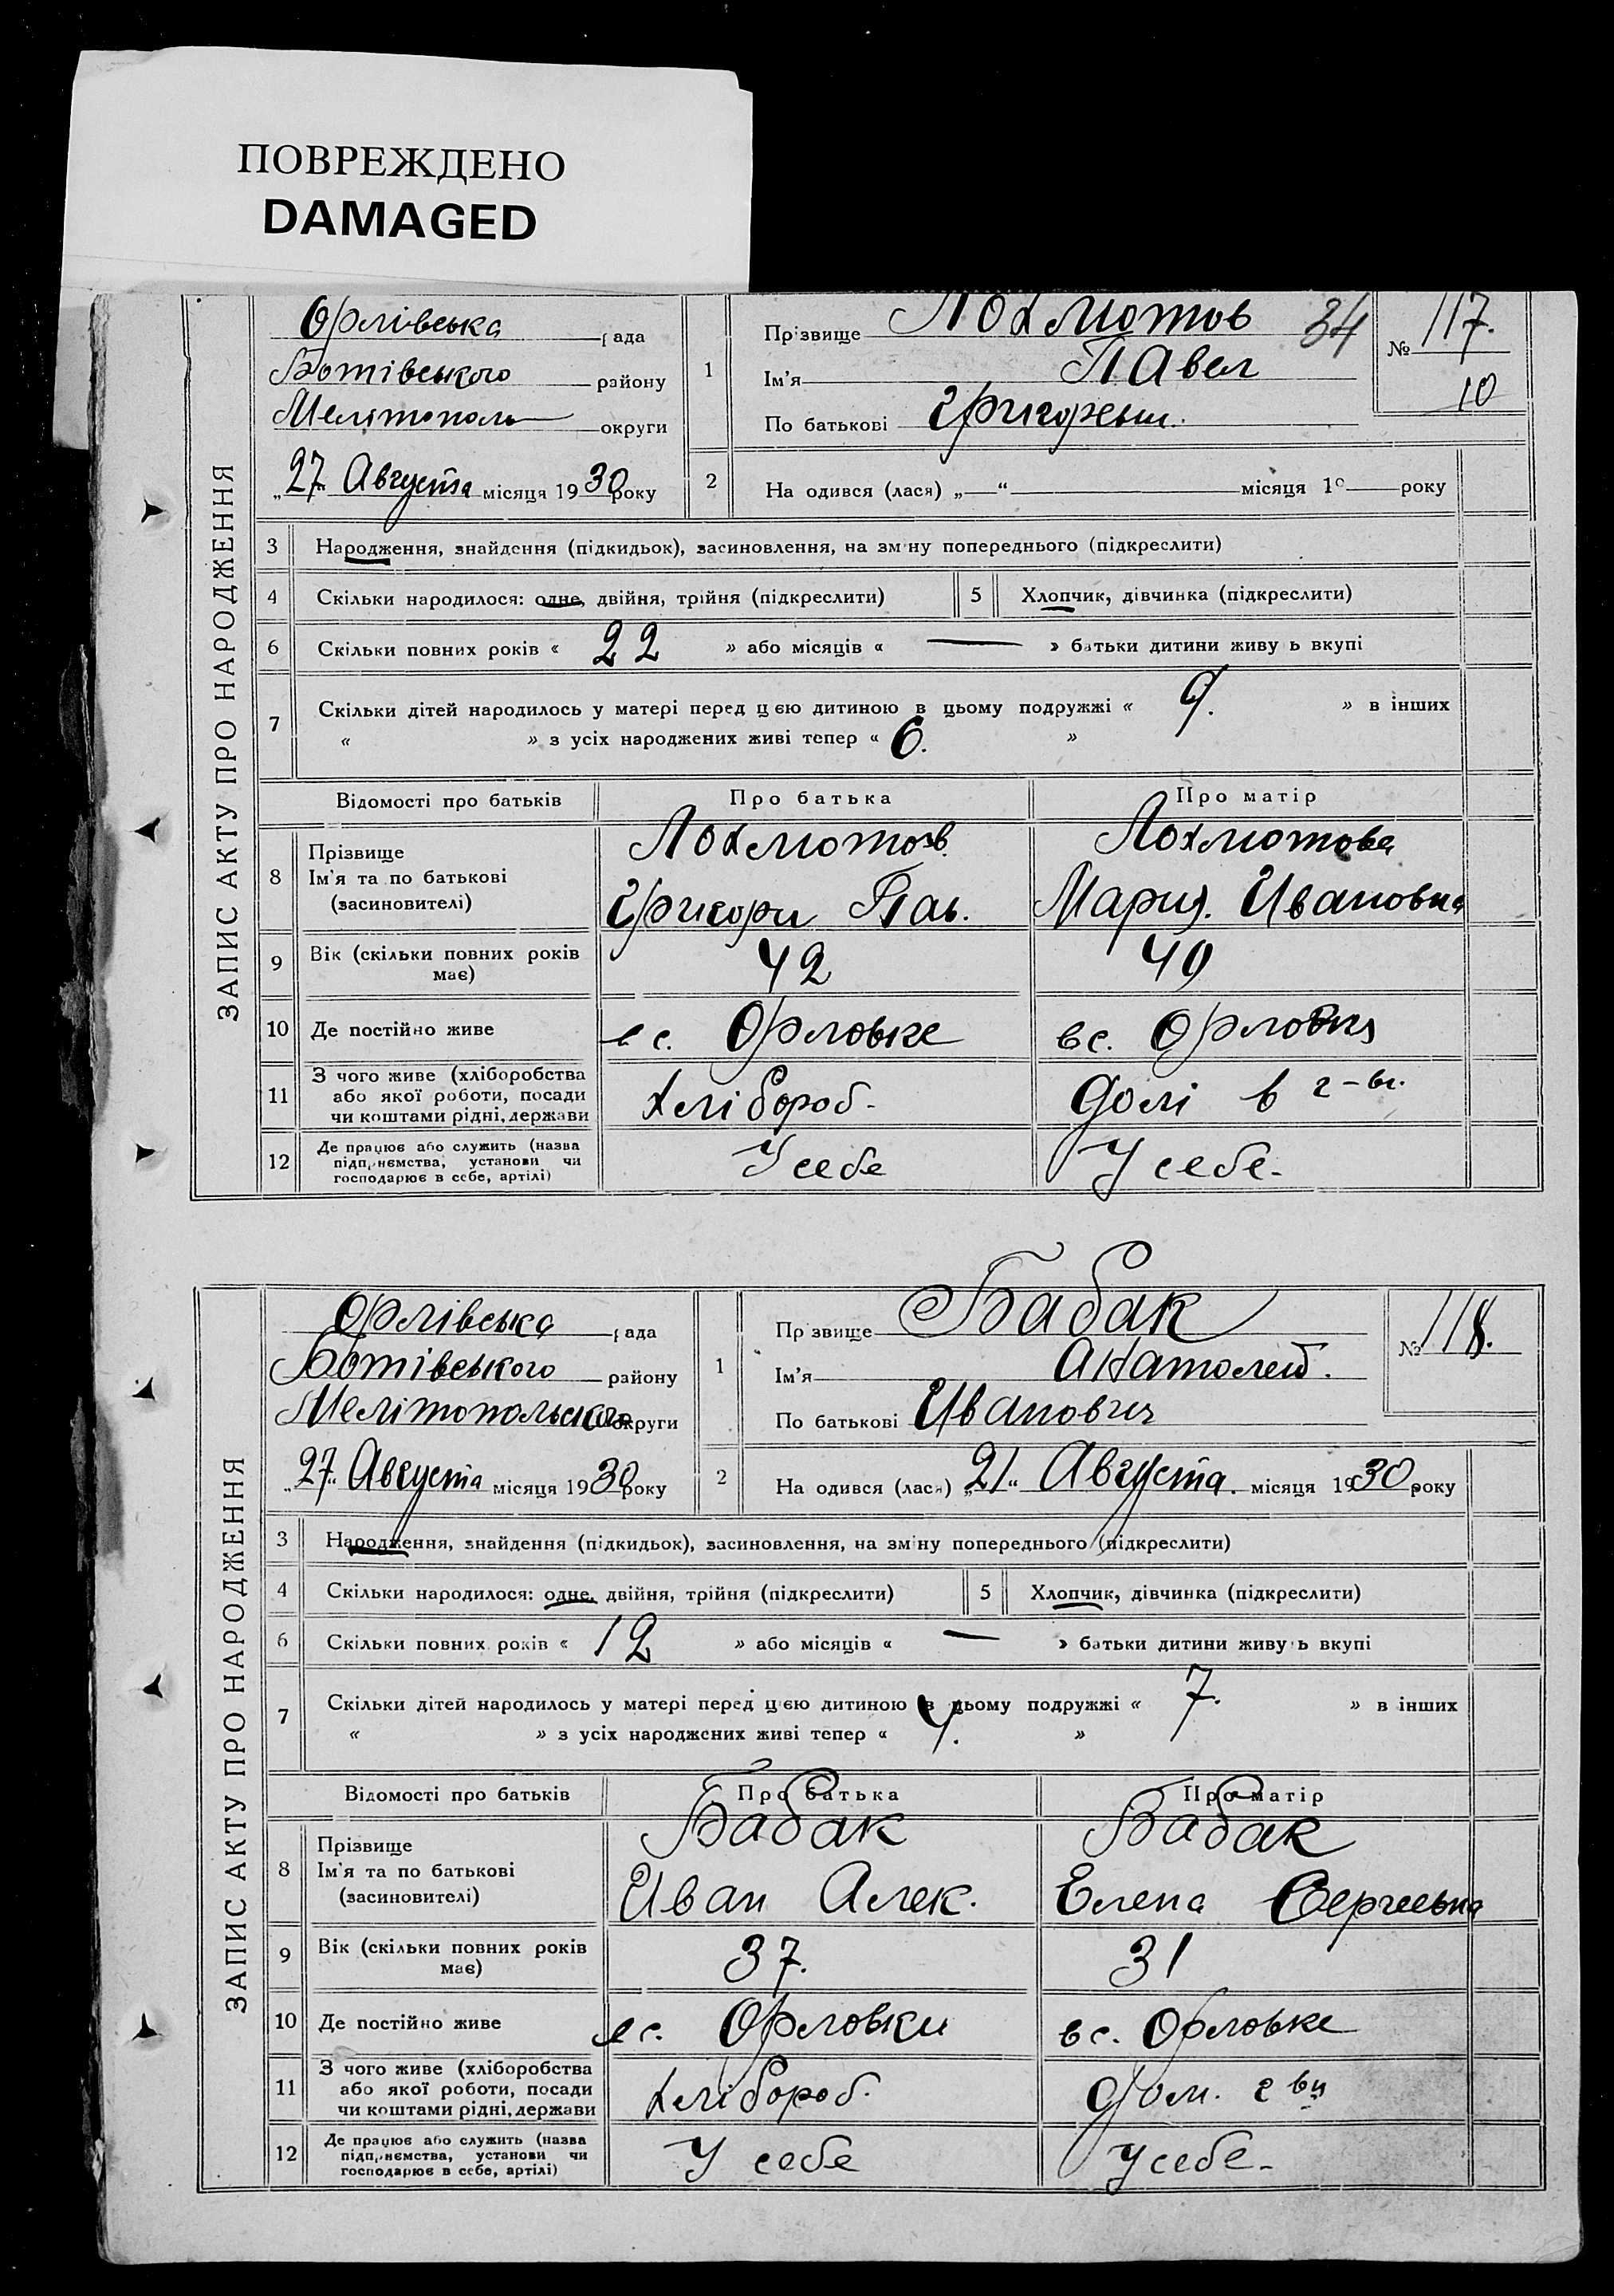 ПОВРЕЖДЕНО
DAMAGED
ЗАПИС АКТУ ПРО НАРОДЖЕННЯ
Орлівська рада
Ботівського району
Мелітополь округи
„27“ Августа місяця 1930 року
1 Прізвище Лохмотов 34
Ім'я Павел
По батькові Григорьеви.
№ 117.
10
2 На одився (лася) „—“ — місяця 1 — року
3 Народження, знайдення (підкидьок), засиновлення, на зміну попереднього (підкреслити)
4 Скільки народилося: одне, двійня, трійня (підкреслити) 5 Хлопчик, дівчинка (підкреслити)
6 Скільки повних років « 22 » або місяців « — » батьки дитини живу ь вкупі
7 Скільки дітей народилось у матері перед цією дитиною в цьому подружжі « 9. » в інших
« » з усіх народжених живі тепер « 6. »
Відомості про батьків Про батька Про матір
8 Прізвище Лохмотов. Лохмотова
Ім'я та по батькові
(засиновителі) Григори Пав. Мария. Ивановна
9 Вік (скільки повних років має) 42 40
10 Де постійно живе в с. Орловке в с. Орловки
11 З чого живе (хліборобства
або якої роботи, посади
чи коштами рідні, держави хлібороб. долі в г-ві.
12 Де працює або служить (назва
підприємства, установи чи
господарює в себе, артілі) У себе У себе.
ЗАПИС АКТУ ПРО НАРОДЖЕННЯ
Орлівська рада
Ботівського району
Мелітопольського округи
„27“ Августа місяця 1930 року
1 Прізвище Бабак
Ім'я Анатолей.
По батькові Иванович
№ 118.
2 На одився (лася) „21“ Августа. місяця 1930 року
3 Народження, знайдення (підкидьок), засиновлення, на зміну попереднього (підкреслити)
4 Скільки народилося: одне, двійня, трійня (підкреслити) 5 Хлопчик, дівчинка (підкреслити)
6 Скільки повних років « 12 » або місяців « — » батьки дитини живу ь вкупі
7 Скільки дітей народилось у матері перед цією дитиною в цьому подружжі « 7. » в інших
« » з усіх народжених живі тепер « 4. »
Відомості про батьків Про батька Про матір
8 Прізвище Бабак Бабак
Ім'я та по батькові
(засиновителі) Иван Алек. Елена Сергеевна
9 Вік (скільки повних років має) 37. 31
10 Де постійно живе в с. Орловки в с. Орловке
11 З чого живе (хліборобства
або якої роботи, посади
чи коштами рідні, держави хлібороб. дом. г ви
12 Де працює або служить (назва
підприємства, установи чи
господарює в себе, артілі) У себе У себе.